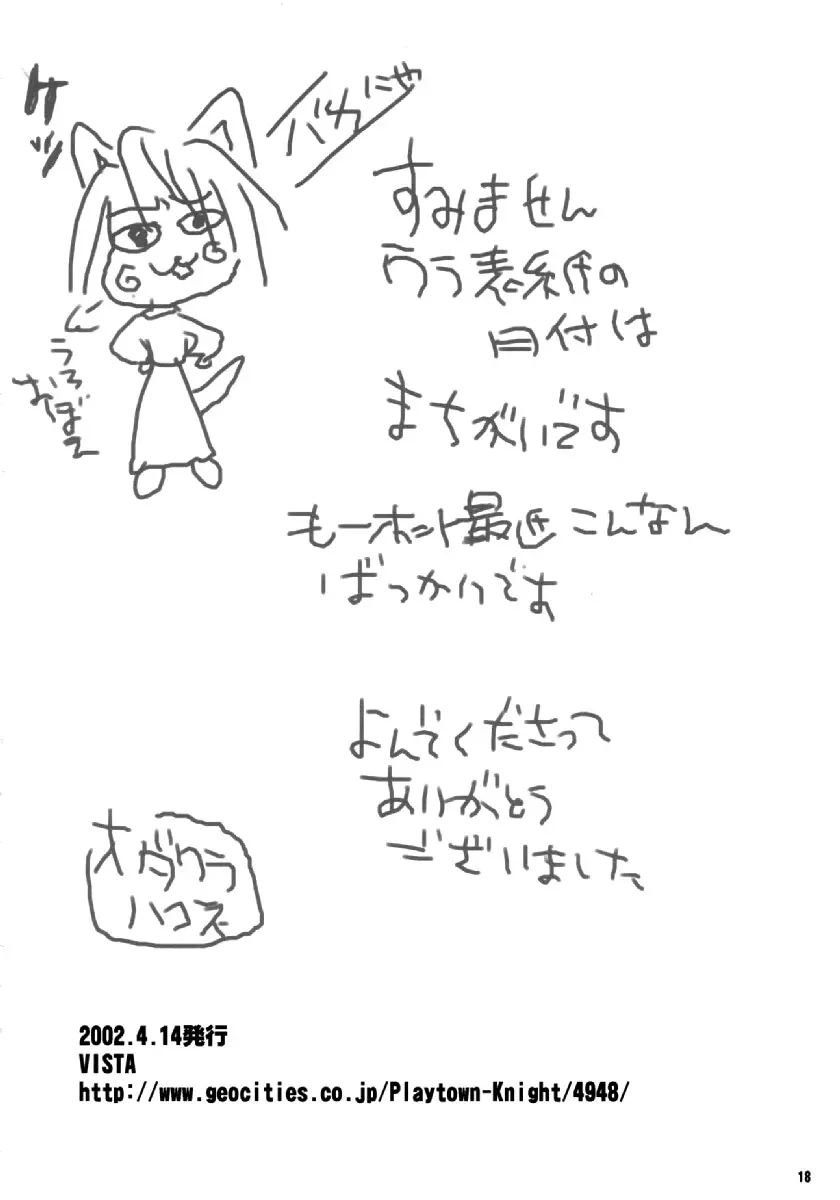 バカにゃ
ケッ
うろ
おぼえ
すみません
ウラ表紙の
日付は
まちがいです
もーホント最近こんなん
ばっかりです
よんでくださって
ありがとう
ございました
オダワラ
ハコネ
2002.4.14発行
VISTA
http://www.geocities.co.jp/Playtown-Knight/4948/
18